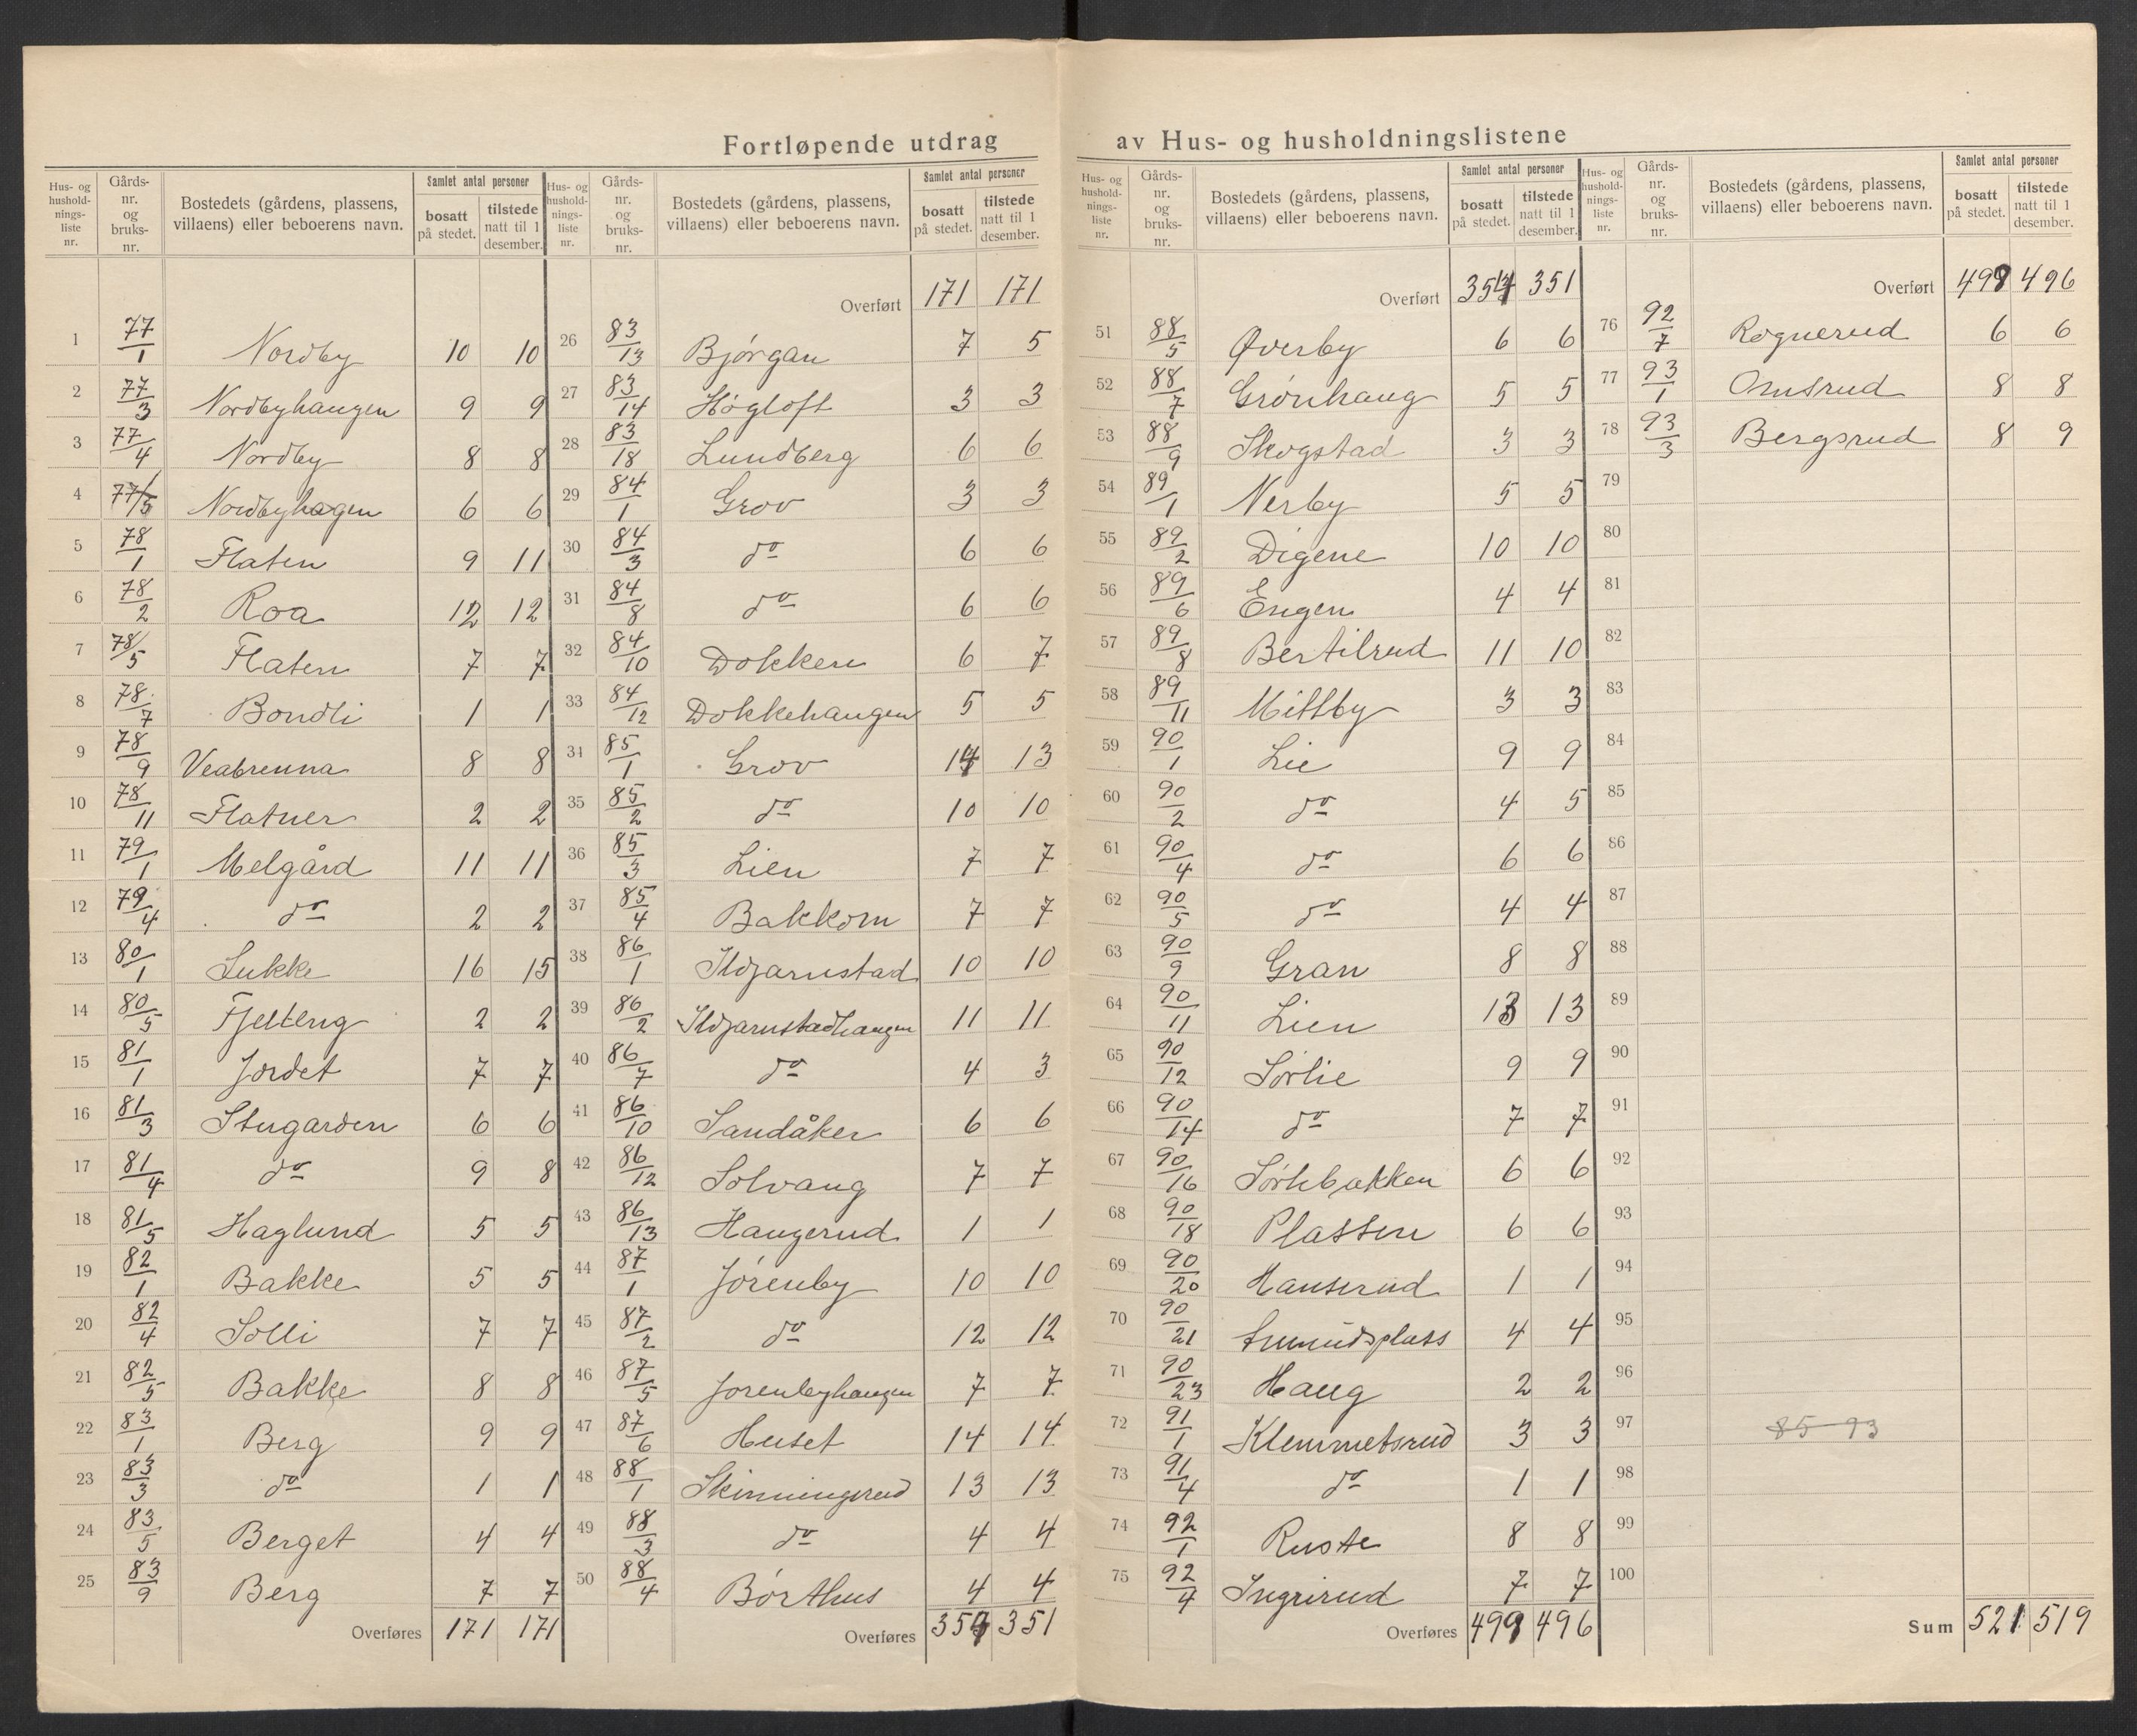 Fortløpende utdrag av Hus- og husholdningslistene
Hus- og husholdnings-liste nr. | Gårds-nr. og bruks-nr. | Bostedets (gårdens, plassens, villaens) eller beboerens navn. | Samlet antal personer bosatt på stedet. | tilstede natt til 1 desember.
1 77/1 Nordby 10 10
2 77/3 Nordbyhaugen 9 9
3 77/4 Nordby 8 8
4 77/5 Nordbyhagen 6 6
5 78/1 Flaten 9 11
6 78/2 Roa 12 12
7 78/5 Flaten 7 7
8 78/7 Bondli 1 1
9 78/9 Veabrenna 8 8
10 78/11 Flatner 2 2
11 79/1 Melgård 11 11
12 79/4 do 2 2
13 80/1 Lukke 16 15
14 80/5 Fjelleng 2 2
15 81/1 Jordet 7 7
16 81/3 Stugarden 6 6
17 81/4 do 9 8
18 81/5 Haglund 5 5
19 82/1 Bakke 5 5
20 82/4 Solli 7 7
21 82/5 Bakke 8 8
22 83/1 Berg 9 9
23 83/3 do 1 1
24 83/5 Berget 4 4
25 83/9 Berg 7 7
Overføres 171 171
Hus- og husholdnings-liste nr. | Gårds-nr. og bruks-nr. | Bostedets (gårdens, plassens, villaens) eller beboerens navn. | Samlet antal personer bosatt på stedet. | tilstede natt til 1 desember.
Overført 171 171
26 83/13 Bjørgan 7 5
27 83/14 Høgloft 3 3
28 83/18 Lundberg 6 6
29 84/1 Grov 3 3
30 84/3 do 6 6
31 84/8 do 6 6
32 84/10 Dokken 6 7
33 84/12 Dokkehaugen 5 5
34 85/1 Grov 14 13
35 85/2 do 10 10
36 85/3 Lien 7 7
37 85/4 Bakkom 7 7
38 86/1 Ildjarnstad 10 10
39 86/2 Ildjarnstadhaugen 11 11
40 86/7 do 4 3
41 86/10 Sandåker 6 6
42 86/12 Solvang 7 7
43 86/13 Haugerud 1 1
44 87/1 Jørenby 10 10
45 87/2 do 12 12
46 87/5 Jørenbyhaugen 7 7
47 87/6 Huset 14 14
48 88/1 Skinningsrud 13 13
49 88/3 do 4 4
50 88/4 Børthus 4 4
Overføres 354 351
Hus- og husholdnings-liste nr. | Gårds-nr. og bruks-nr. | Bostedets (gårdens, plassens, villaens) eller beboerens navn. | Samlet antal personer bosatt på stedet. | tilstede natt til 1 desember.
Overført 354 351
51 88/5 Øverby 6 6
52 88/7 Grønhaug 5 5
53 88/9 Skogstad 3 3
54 89/1 Nerby 5 5
55 89/2 Digene 10 10
56 89/6 Engen 4 4
57 89/8 Bertilrud 11 10
58 89/11 Mittby 3 3
59 90/1 Lie 9 9
60 90/2 do 4 5
61 90/4 do 6 6
62 90/5 do 4 4
63 90/9 Gran 8 8
64 90/11 Lien 13 13
65 90/12 Sørlie 9 9
66 90/14 do 7 7
67 90/16 Sørlibakken 6 6
68 90/18 Plassen 6 6
69 90/20 Hanserud 1 1
70 90/21 Amundsplass 4 4
71 90/23 Haug 2 2
72 91/1 Klemmetsrud 3 3
73 91/4 do 1 1
74 92/1 Ruste 8 8
75 92/4 Ingrirud 7 7
Overføres 499 496
Hus- og husholdnings-liste nr. | Gårds-nr. og bruks-nr. | Bostedets (gårdens, plassens, villaens) eller beboerens navn. | Samlet antal personer bosatt på stedet. | tilstede natt til 1 desember.
Overført 499 496
76 92/7 Rognerud 6 6
77 93/1 Omsrud 8 8
78 93/3 Bergsrud 8 9
79
80
81
82
83
84
85
86
87
88
89
90
91
92
93
94
95
96
97 85-93
98
99
100
Sum 521 519